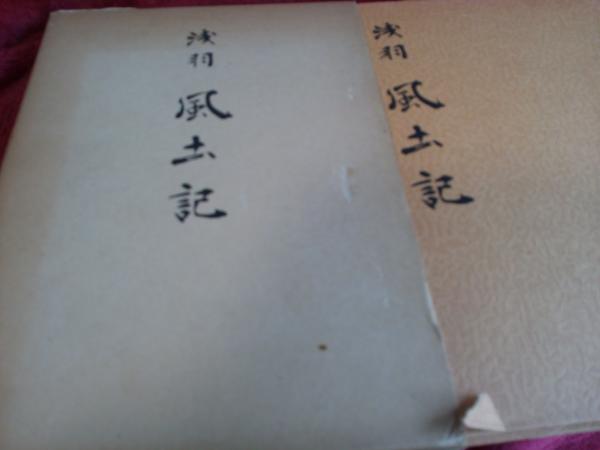 浅羽
風土記
浅羽
風土記